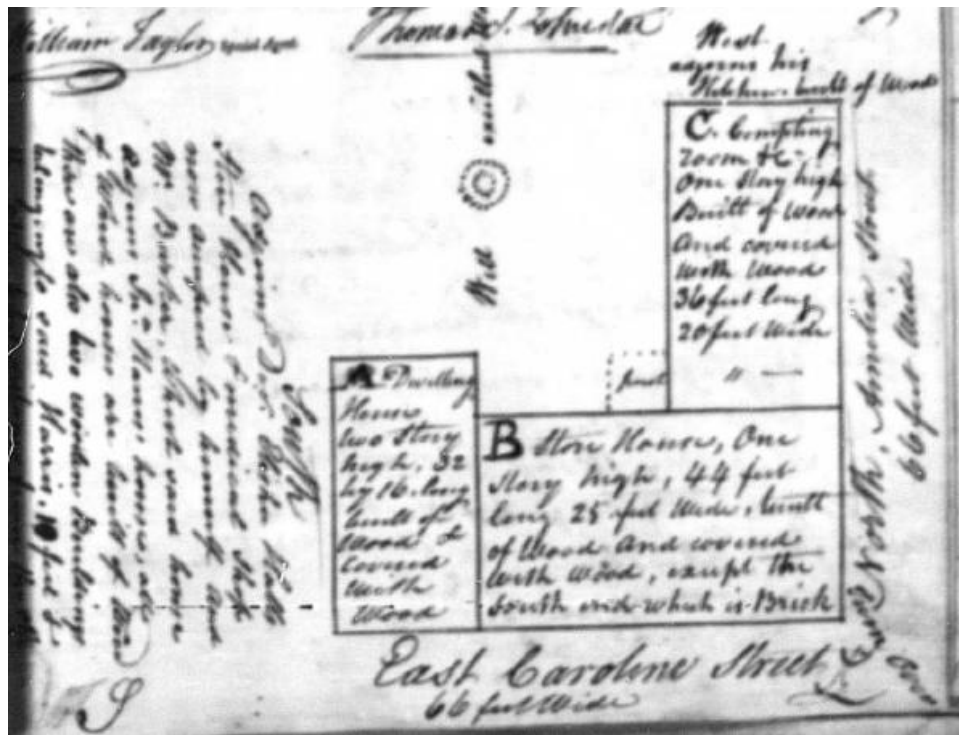 William Taylor
Thomas
West
adjoins his
Kitchen built of Wood
C. Compting
room &c
One Story high
Built of Wood
And covered
With Wood
36 feet long
20 feet Wide
Well
A Dwelling
House
two Story
high, 32
by 16. long
built of
Wood &
covered
with
Wood
B Store House, One
Story high, 44 feet
long 25 feet Wide, built
of Wood And covered
with Wood, except the
South end which is Brick
East Caroline Street
66 feet Wide
North, Amelia Street
66 feet Wide
South
Adjoins Dr. Elisha Halls
Store House & medical Shop
now occupied by himself and
Mr. Barker, And said house
Adjoins Jno. House, also
of Which houses are built of
there are also two wooden Buildings
belonging to said Harris, 10 feet
S